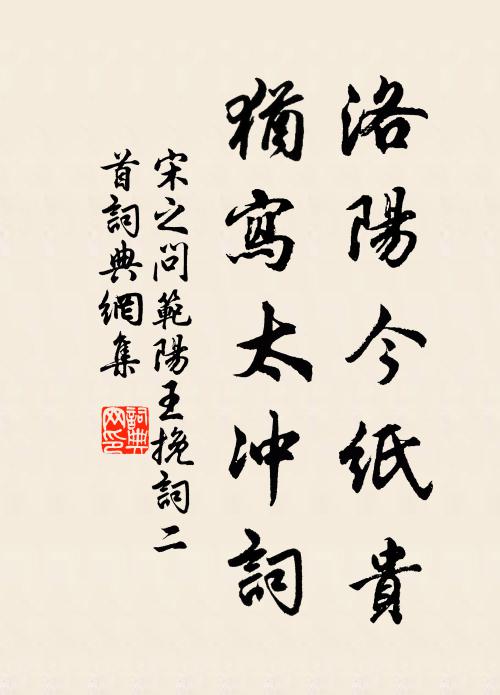 洛陽今紙貴
猶寫太冲詞
宋之问範陽王挽詞二
首詞典網集
詞典
网印